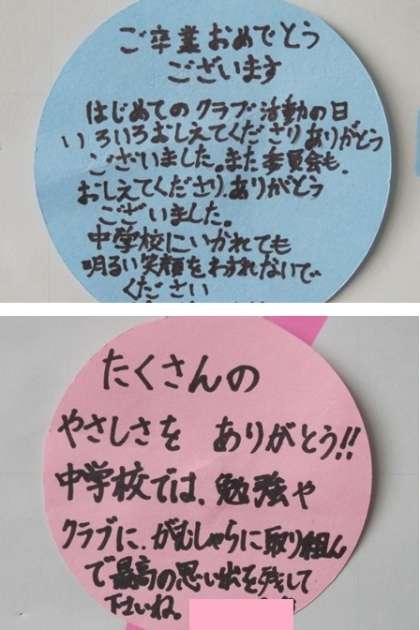 ご卒業おめでとう
ございます
はじめてのクラブ活動の日
いろいろおしえてくださりありがとう
ございました。また委員会も、
おしえてくださり、ありがとう
ございました。
中学校にいかれても
明るい笑顔をわすれないで
ください
たくさんの
やさしさを ありがとう!!
中学校では、勉強や
クラブに、がむしゃらに取り組ん
で最高の思い出を残して
下さいね。